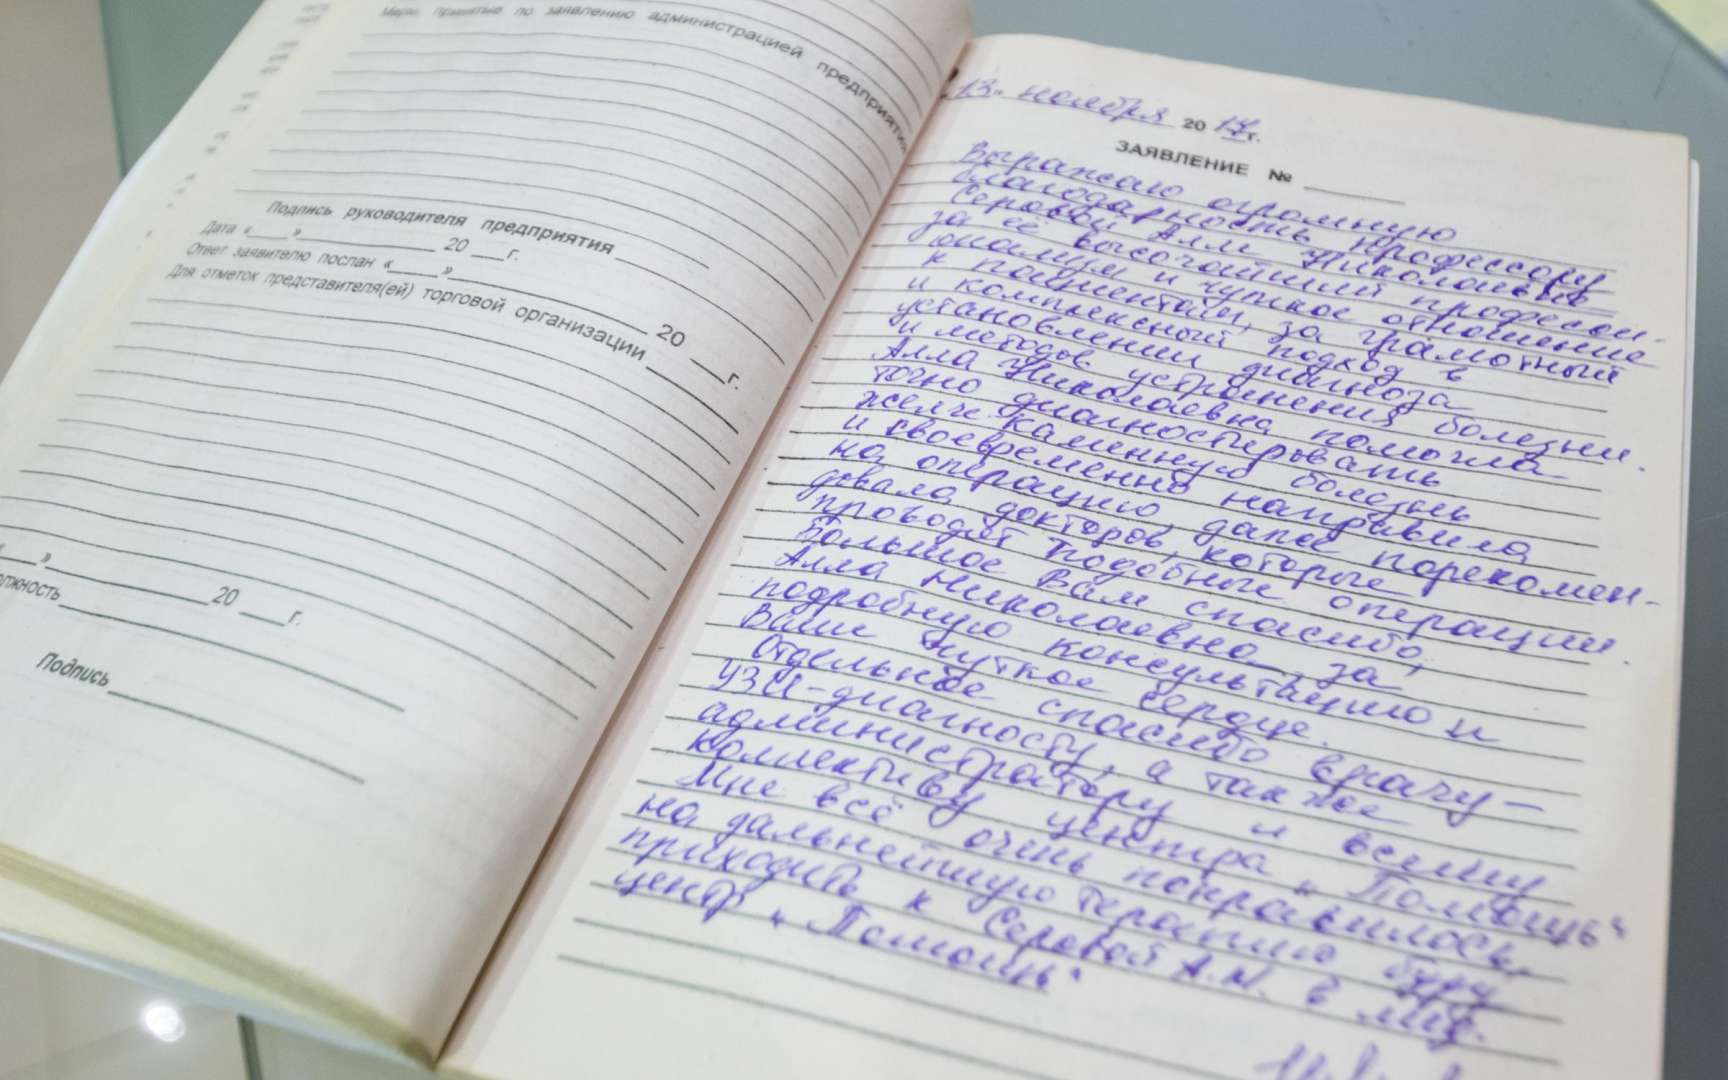 Меры, принятые по заявлению администрацией предприятия
Подпись руководителя предприятия
Дата « » 20 г.
Ответ заявителю послан « » 20 г.
Для отметок представителя(ей) торговой организации
« » 20 г.
Подпись
13 ноября 2017 г.
ЗАЯВЛЕНИЕ №
Выражаю огромную
благодарность профессору
Серовой Алле Николаевне
за её высочайший професси-
онализм и чуткое отношение
к пациентам, за грамотный
и комплексный подход в
установлении диагноза
и методов устранения болезни.
Алла Николаевна помогла
точно диагностировать
желчекаменную болезнь
и своевременно направила
на операцию, даже порекомен-
довала докторов, которые
проводят подобные операции.
Большое Вам спасибо,
Алла Николаевна за
подробную консультацию и
Ваше чуткое сердце.
Отдельное спасибо врачу-
УЗИ-диагносту, а также
администратору и всему
коллективу центра „Помощь“
Мне всё очень понравилось,
на дальнейшую терапию буду
приходить к Серовой А.Н. в мед.
центр „Помощь“